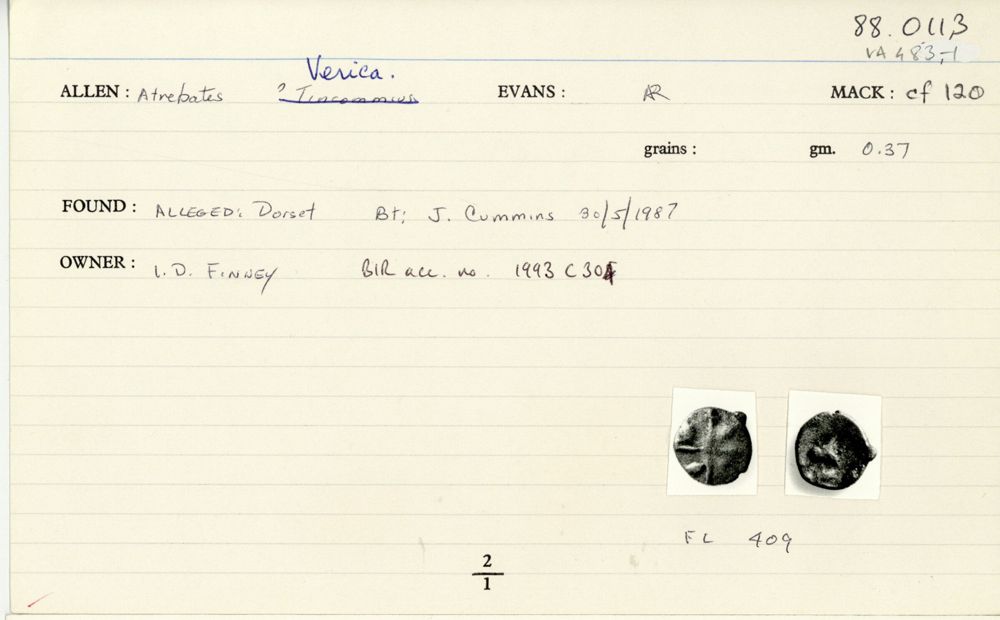 88.0113
VA 483-1
Verica.
ALLEN : Atrebates ? Tincommius EVANS : AR MACK : cf 120
grains : gm. 0.37
FOUND : ALLEGED: Dorset Bt: J. Cummins 30/5/1987
OWNER : I. D. FINNEY BIR acc. no. 1993 C
FL 409
2
1